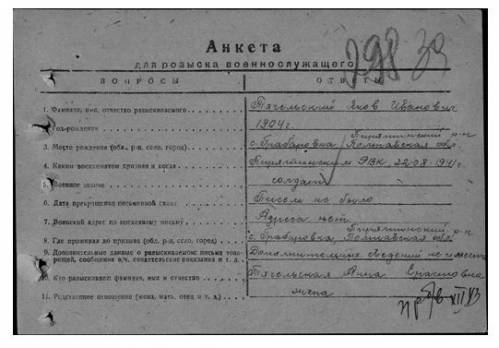 Анкета
для розыска военнослужащего
298 39
ВОПРОСЫ
ОТВЕТЫ
1. Фамилия, имя, отчество разыскиваемого
Тягольский Яков Иванович
2. Год рождения
1904 г.
3. Место рождения (обл., р-н, село, город)
Пирятинский р-н
с. Грабаровка Полтавская обл.
4. Каким военкоматом призван и когда
Пирятинским РВК 22-08-1941 г.
5. Воинское звание
солдат
6. Дата прекращения письменной связи
Писем не было
7. Воинский адрес по последнему письму
Адреса нет
8. Где проживал до призыва (обл. р-н, село, город)
Пирятинский р-н
с. Грабаровка Полтавская обл.
9. Дополнительные данные о разыскиваемом: письма товарищей, сообщения в/ч, свидетельские показания и т. д.
Дополнительных сведений не имеется
10. Кто разыскивает: фамилия, имя и отчество
Тягольская Анна
11. Родственное отношение (жена, мать, отец и т. д.)
жена
пр б/в XII 43